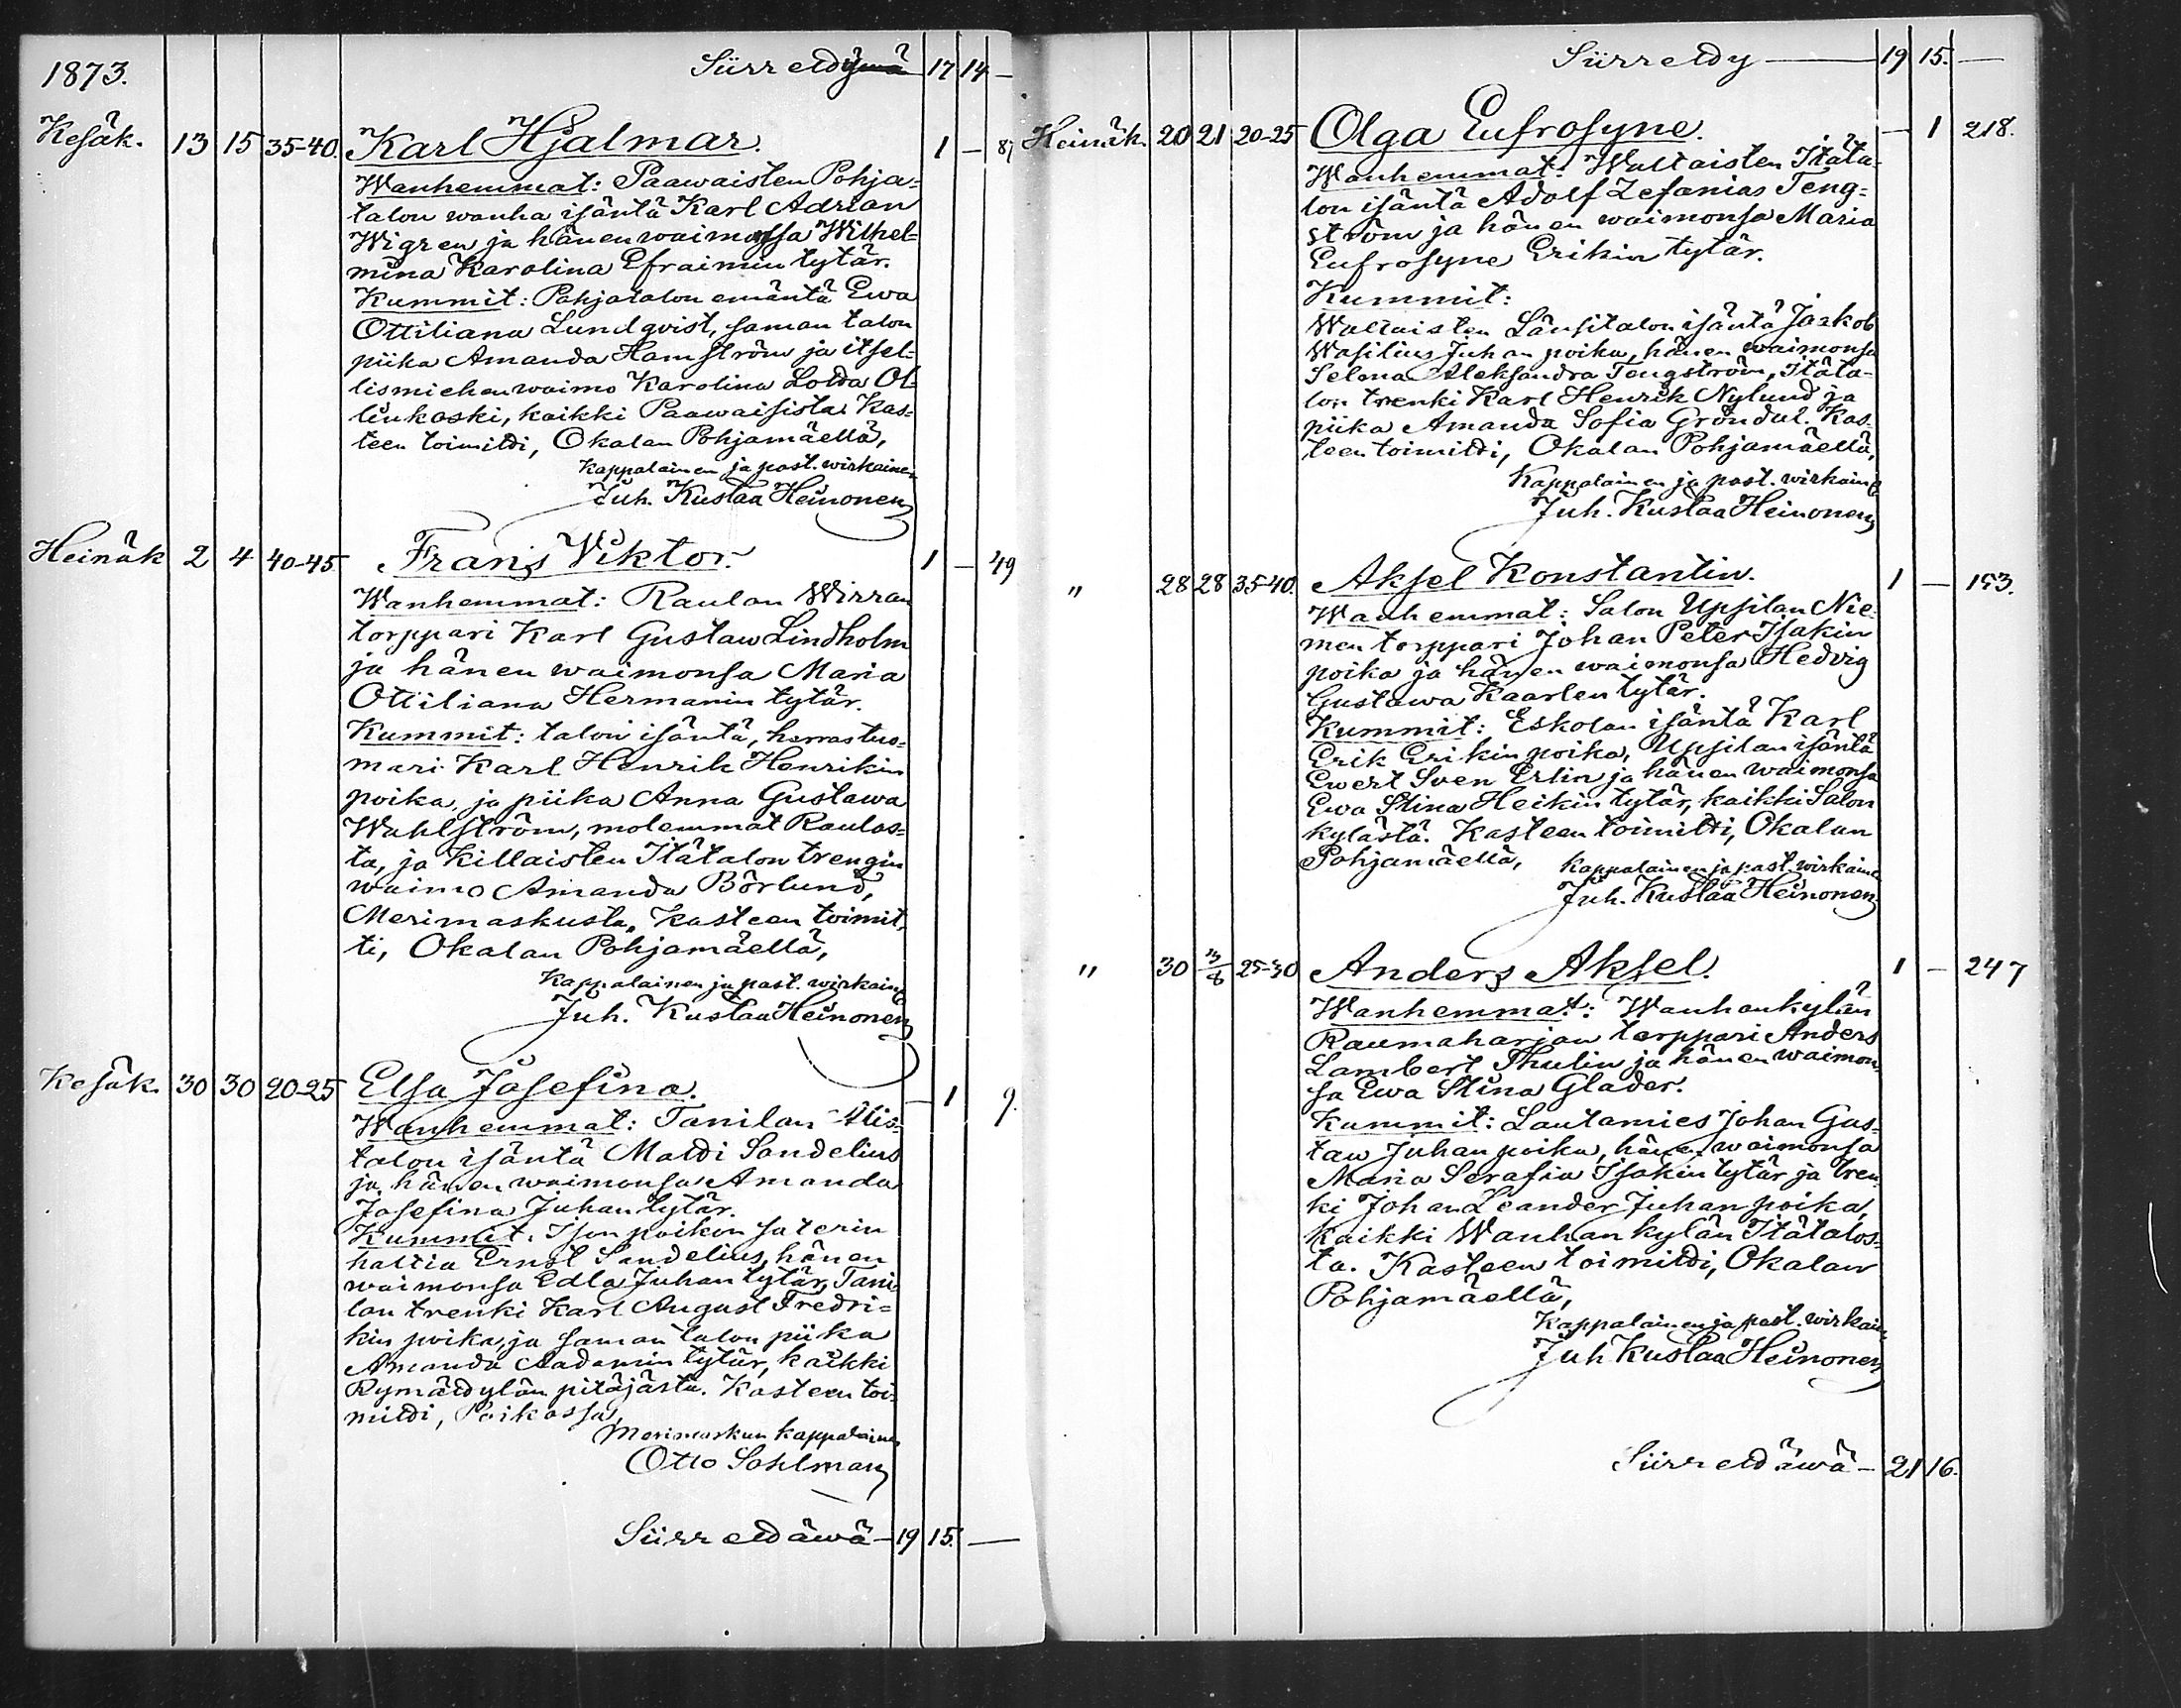 1873.
Siirreldy 17 14 —
Kesäk. 13 15 35-40. Karl Hjalmar. 1 — 87
Wanhemmat: Paawaisten Pohja=
talon wanha isäntä Karl Adrian
Wigren ja hänen waimonsa Wilhel=
mina Karolina Efraimin tytär.
Kummit: Pohjatalon emäntä Ewa
Ottiliana Lundqvist, saman talon
piika Amanda Hamström ja itsel=
lismiehen waimo Karolina Lotta Ol=
linkoski, kaikki Paawaisista. Kas=
teen toimitti, Okalan Pohjamäellä,
Kappalainen ja past. wirkainen
Juh. Kustaa Heinonen
Heinäk 2 4 40-45 Frans Viktor. 1 — 49
Wanhemmat: Raulan Wirran
torppari Karl Gustaw Lindholm
ja hänen waimonsa Maria
Ottiliana Hermanin tytär.
Kummit: talon isäntä, herrastuo=
mari Karl Henrik Henrikin
poika, ja piika Anna Gustawa
Wahlström, molemmat Raulas=
ta, ja Killaisten Itätalon trengin
waimo Amanda Börlund,
Merimaskusta. Kasteen toimit=
ti, Okalan Pohjamäellä,
Kappalainen ja past. wirkain
Juh. Kustaa Heinonen
Kesäk. 30 30 20-25 Elsa Josefina. — 1 9.
Wanhemmat: Tanilan Ylis=
talon isäntä Matti Sandelius
ja hänen waimonsa Amanda
Josefina Juhan tytär.
Kummit: Ison poikon säterin
haltia Ernst Sandelius, hänen
waimonsa Edla Juhan tytär, Tani
lan trenki Karl August Fredri=
kin poika, ja saman talon piika
Amanda Aadamin tytär, kaikki
Rymättylän pitäjästä. Kasteen toi=
mitti, Poikossa,
Merimaskun kappalainen
Otto Sohlman
Siirrettäwä — 19 15. —
Siirretty — 19 15. —
Heinäk. 20 21 20-25 Olga Eufrosyne. — 1 218.
Wanhemmat: Waltaisten Itäta=
lon isäntä Adolf Zefanias Teng=
ström ja hänen waimonsa Maria
Eufrosyne Erikin tytär.
Kummit:
Waltaisten Länsitalon isäntä Jaakob
Wasilius Juhan poika, hänen waimonsa
Selma Aleksandra Tengström, Itäta=
lon trenki Karl Henrik Nylund ja
piika Amanda Sofia Gröndal. Kas=
teen toimitti, Okalan Pohjamäellä,
Kappalainen ja past. wirkain
Juh. Kustaa Heinonen
" 28 28 35-40. Aksel Konstantin. 1 — 153.
Wanhemmat: Salon Upsilan Nie=
men torppari Johan Peter Isakin
poika ja hänen waimonsa Hedvig
Gustawa Kaarlen tytär.
Kummit: Eskolan isäntä Karl
Erik Erikin poika, Upsilan isäntä
Ewert Sven Erlin ja hänen waimonsa
Ewa Stina Heikin tytär, kaikki Salon
kylästä. Kasteen toimitti, Okalan
Pohjamäellä, Kappalainen ja past. wirkain
Juh. Kustaa Heinonen
" 30 3/8 25-30 Anders Aksel. 1 — 247
Wanhemmat: Wanhankylän
Raumaharjan torppari Anders
Lambert Thulin ja hänen waimon
sa Ewa Stina Glader.
Kummit: Lautamies Johan Gus=
taw Juhan poika, hänen waimonsa
Maria Serafia Isakin tytär ja tren
ki Johan Leander Juhan poika,
kaikki Wanhan kylän Itätalos=
ta. Kasteen toimitti, Okalan
Pohjamäellä,
Kappalainen ja past. wirkain
Juh Kustaa Heinonen
Siirrettäwä — 21 16.